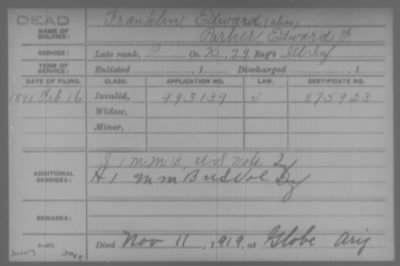 DEAD
Franklin Edward (alias)
NAME OF SOLDIER: Parker Edward F
SERVICE: Late rank, P Co. K, 79 Reg't Ill Inf
TERM OF SERVICE: Enlisted , 1 Discharged , 1
DATE OF FILING. CLASS. APPLICATION NO. LAW. CERTIFICATE NO.
1891 Feb 16 Invalid, 993139 J 875923
Widow,
Minor,
J 1 M M B, U S Vols
ADDITIONAL SERVICES: H 1 M M B U S Vol
REMARKS:
Died Nov 11, 1919, at Globe Ariz